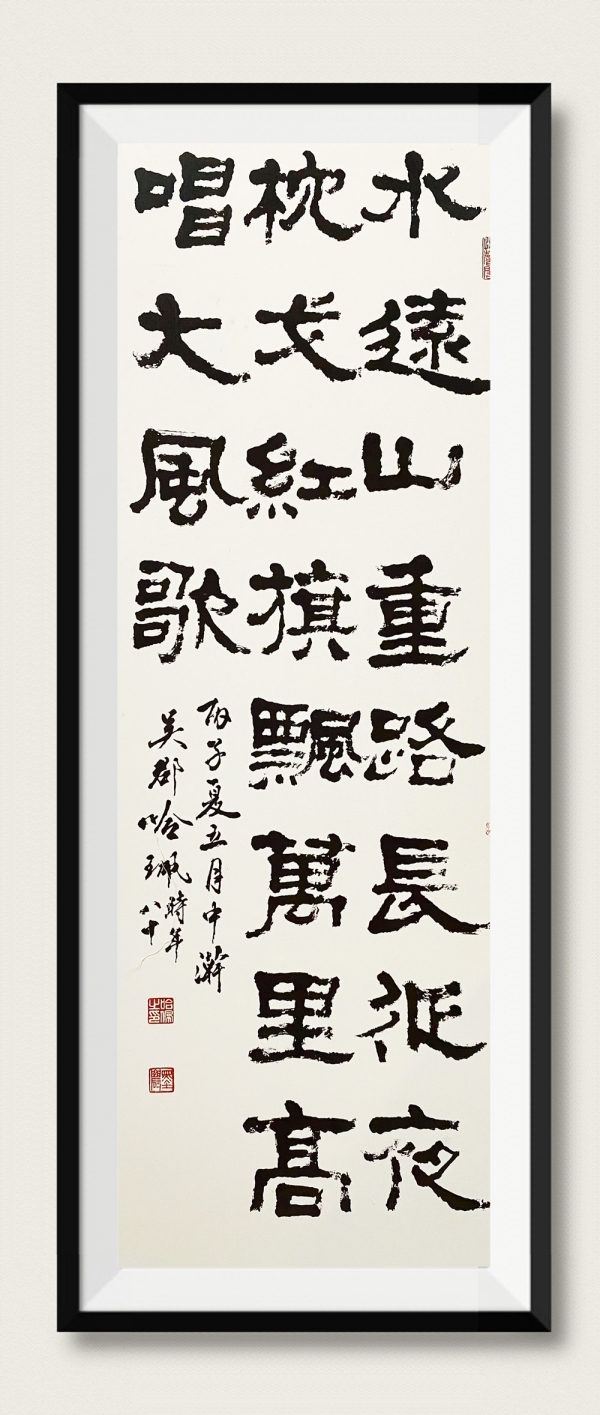 水遠山重路長征夜
枕戈紅旗飄萬里高
唱大風歌
丙子夏五月中澣
吳郡哈珮時年八十
哈佩之印